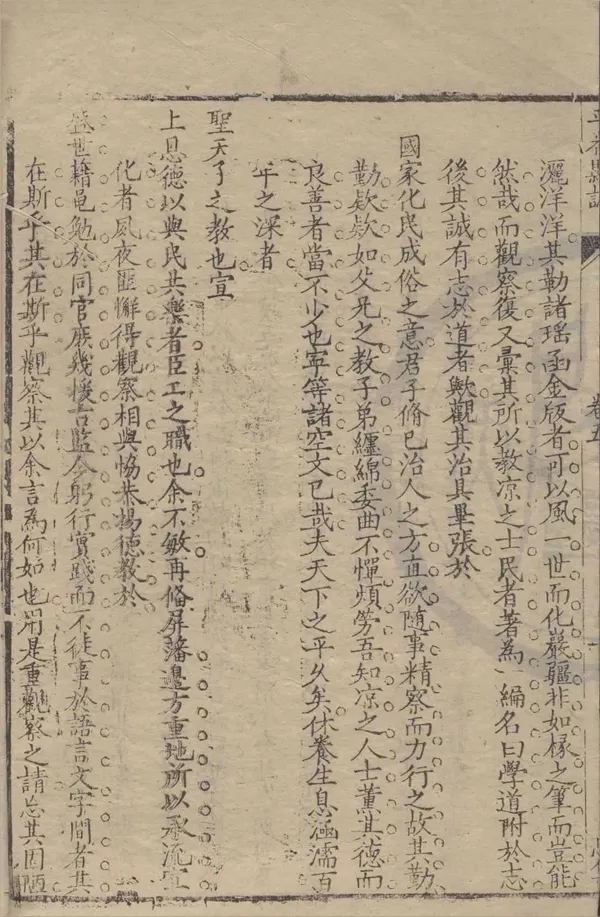 平番縣誌
卷五
灑洋洋其勒諸瑶函金版者可以風一世而化巖疆非如椽之筆而豈能
然哉而觀察復又彙其所以教凉之士民者著為一編名曰學道附於志
後其誠有志於道者歟觀其治具畢張於
國家化民成俗之意君子脩巳治人之方直欲随事精察而力行之故其勤
勤欵欵如父兄之教子弟纏綿委曲不憚煩勞吾知凉之人士薰其德而
良善者當不少也寕等諸空文已哉夫天下之平久矣休養生息涵濡百
年之深者
聖天子之教也宣
上恩德以與民共樂者臣工之職也余不敏再脩屏藩邉方重地所以承流宣
化者夙夜匪懈得觀察相與恊恭揚德教於
盛世藉黾勉於同官庶幾援古監今躬行實踐而不徒事於語言文字間者其
在斯乎其在斯乎觀察其以余言為何如也用是重觀察之請忘其固陋